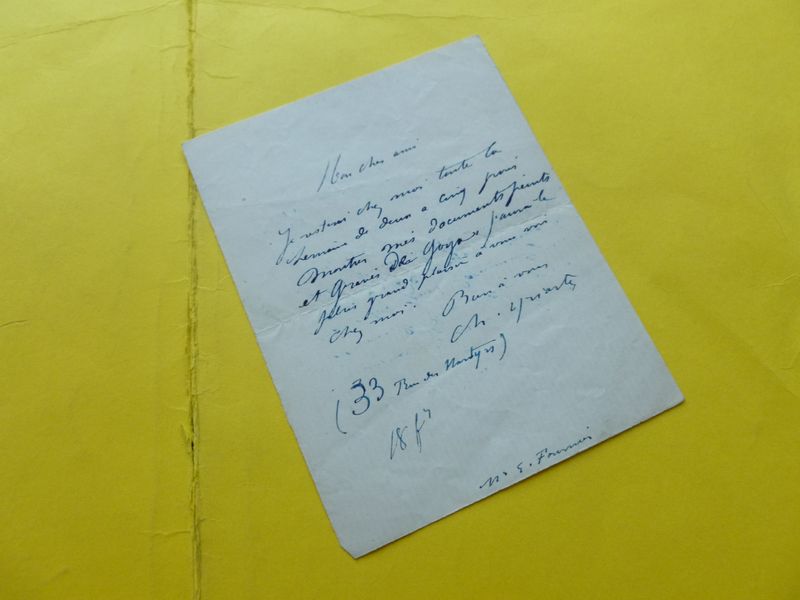 Mon cher ami
Je resterai chez moi toute la
semaine de deux a cinq pour
montrer mes documents peints
et gravés de Goya, j'aurai le
plus grand plaisir a vous voir
chez moi. Bien à vous
Ch. Yriarte
(33 Rue des Martyrs)
18 fr
Mr E. Fournier